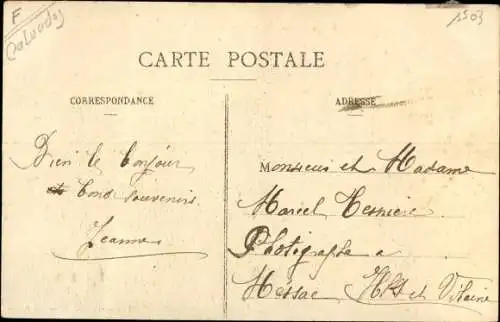 F
Calvados
1503
CARTE POSTALE
CORRESPONDANCE
ADRESSE
Bien le bonjour
et bons souvenirs
Jeanne
Monsieur et Madame
Marcel
Photographe a
Messac et Vilaine